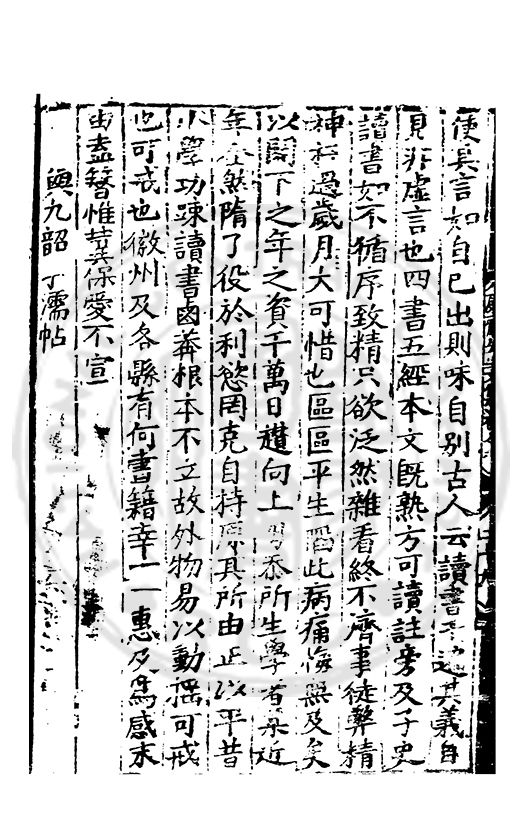 使其言如自己出則味自別古人云讀書千遍其義自
見非虛言也四書五經本文既熟方可讀註旁及子史
讀書如不循序致精只欲泛然雜看終不濟事徒弊精
神枉過歲月大可惜也區區平生蹈此病痛悔無及矣
以閣下之年之資千萬日趲向上 忝所生學者 近
年 然隋了役於利慾罔克自持原其所由正以平昔
小學功踈讀書鹵莽根本不立故外物易以動搖可戒
也可戒也徽州及各縣有何書籍幸一一惠及爲感末
由盍簪惟 保愛不宣
與九韶丁濡帖